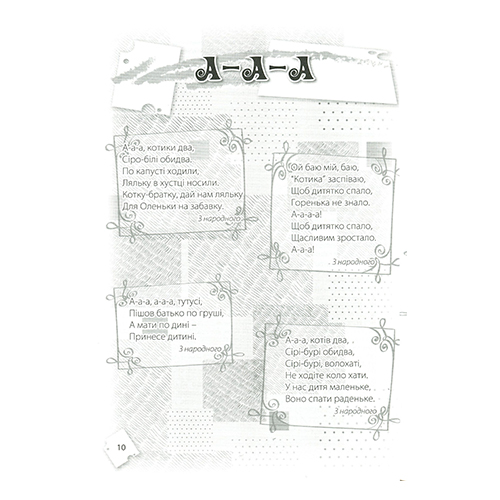 А-А-А
А-а-а, котики два,
Сіро-білі обидва.
По капусті ходили,
Ляльку в хустці носили.
Котку-братку, дай нам ляльку
Для Оленьки на забавку.
З народного
Ой баю мій, баю,
"Котика" заспіваю,
Щоб дитятко спало,
Горенька не знало.
А-а-а-а!
Щоб дитятко спало,
Щасливим зростало.
А-а-а!
З народного
А-а-а, а-а-а, тутусі,
Пішов батько по груші,
А мати по дині –
Принесе дитині.
З народного
А-а-а, котів два,
Сірі-бурі обидва,
Сірі-бурі, волохаті,
Не ходіте коло хати.
У нас дитя маленьке,
Воно спати раденьке.
З народного
10